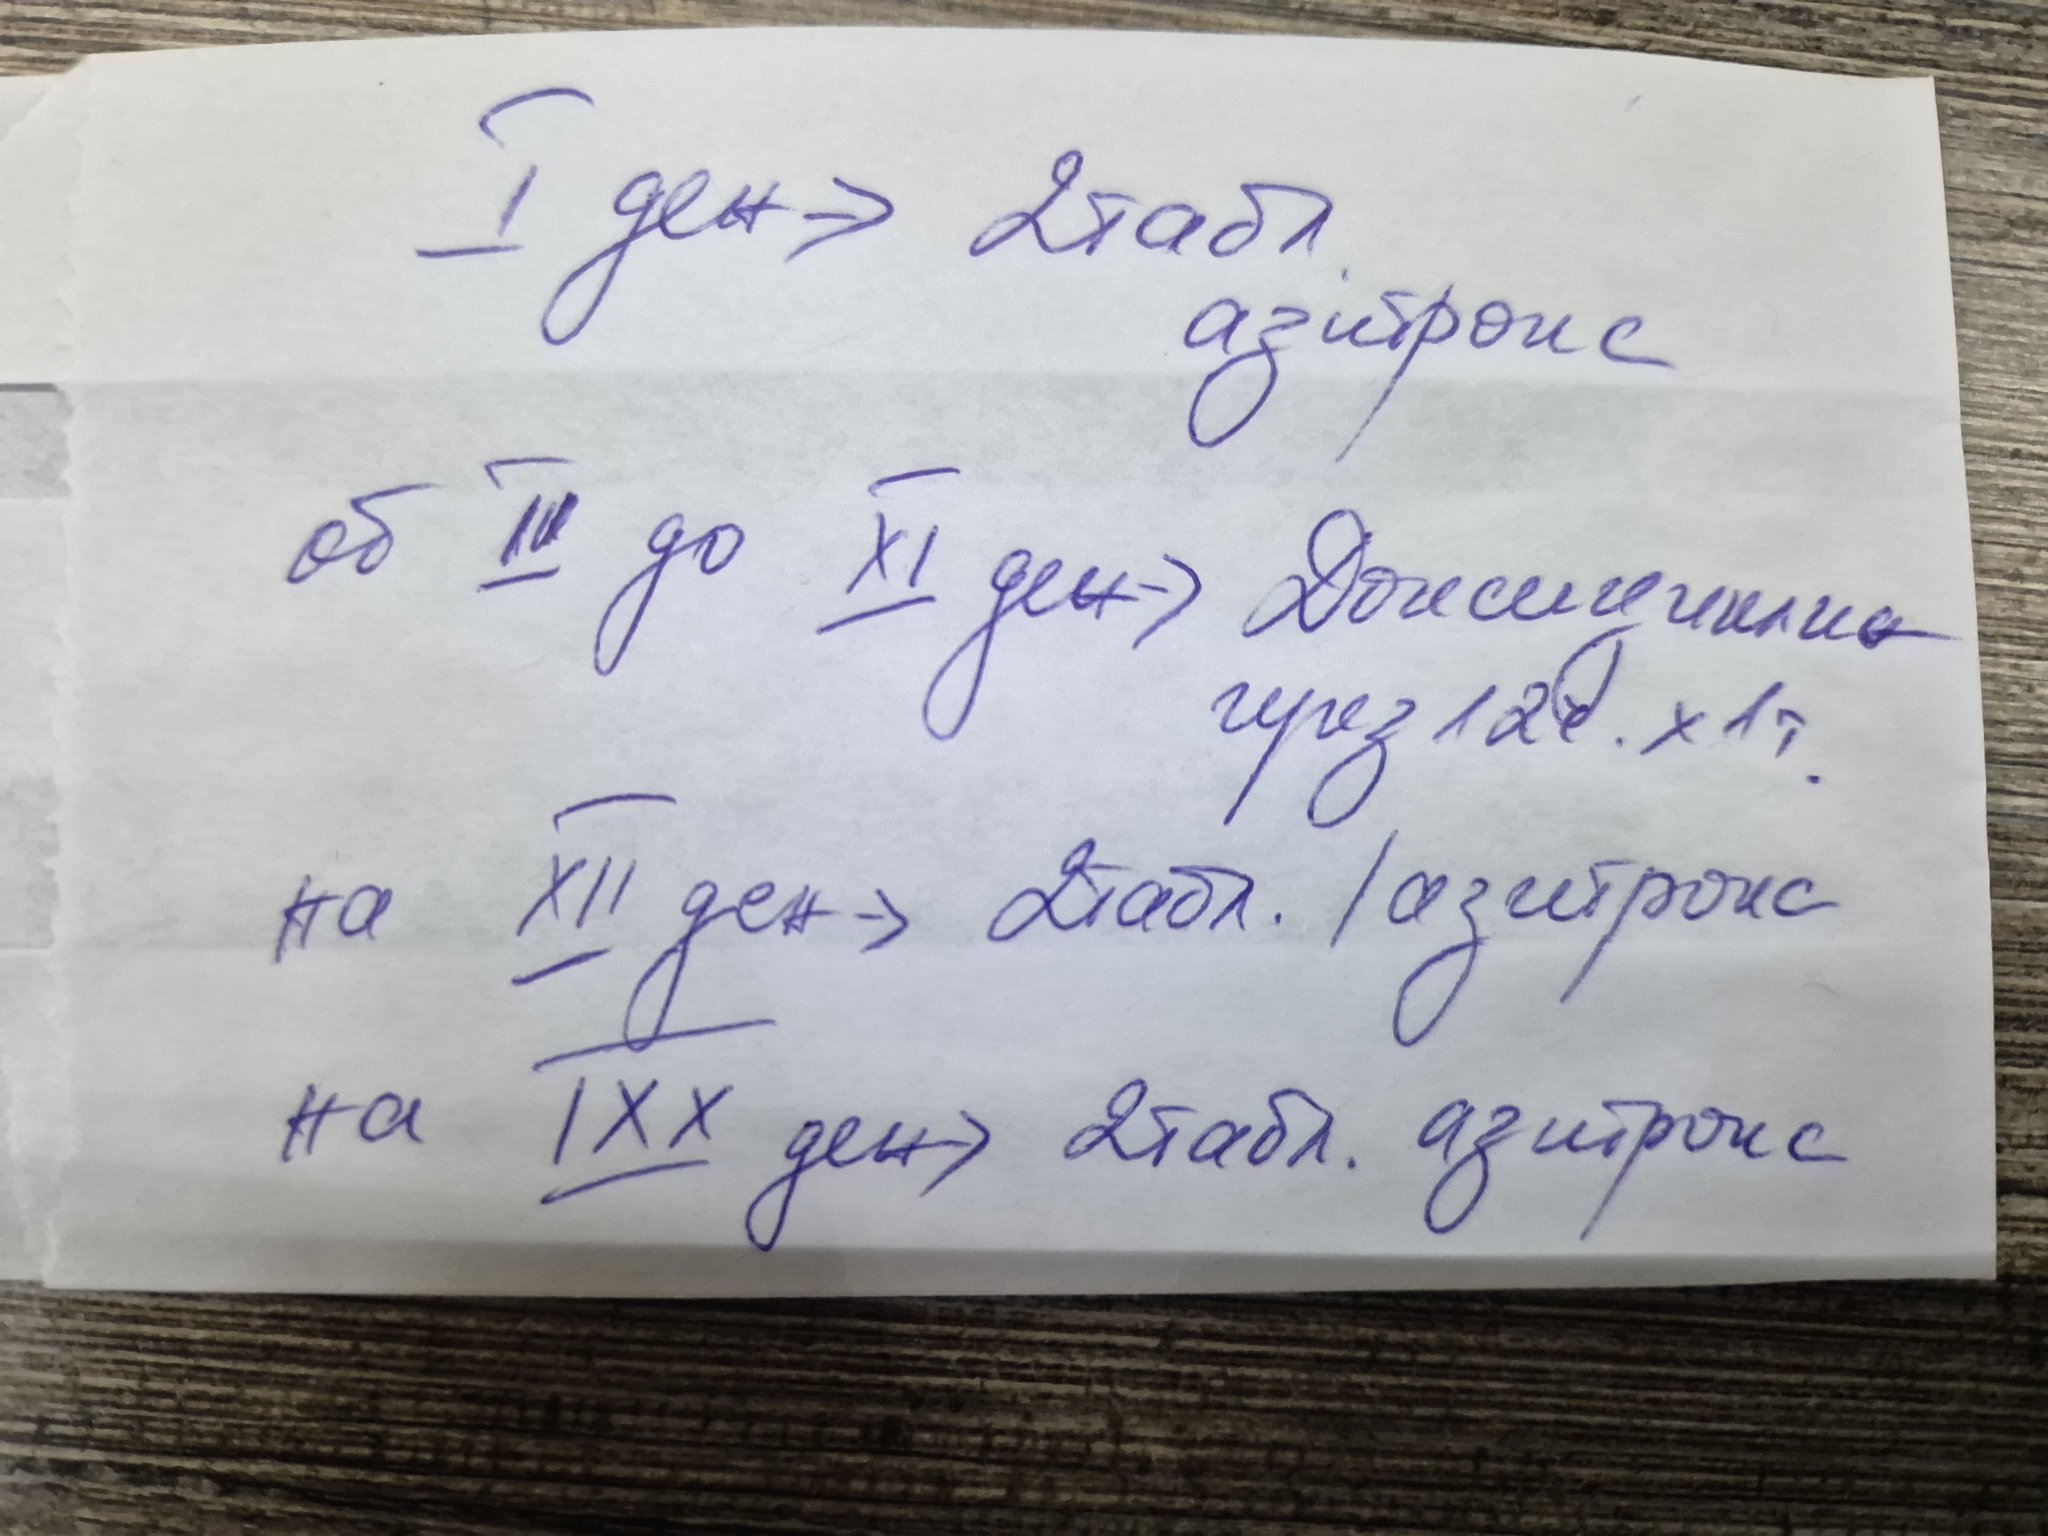 I ден → 2 табл.
азитрокс
об II до XI ден → Доксициклин
през 12 ч. х 1 т.
на XII ден → 2 табл. / азитрокс
на IXX ден → 2 табл. азитрокс